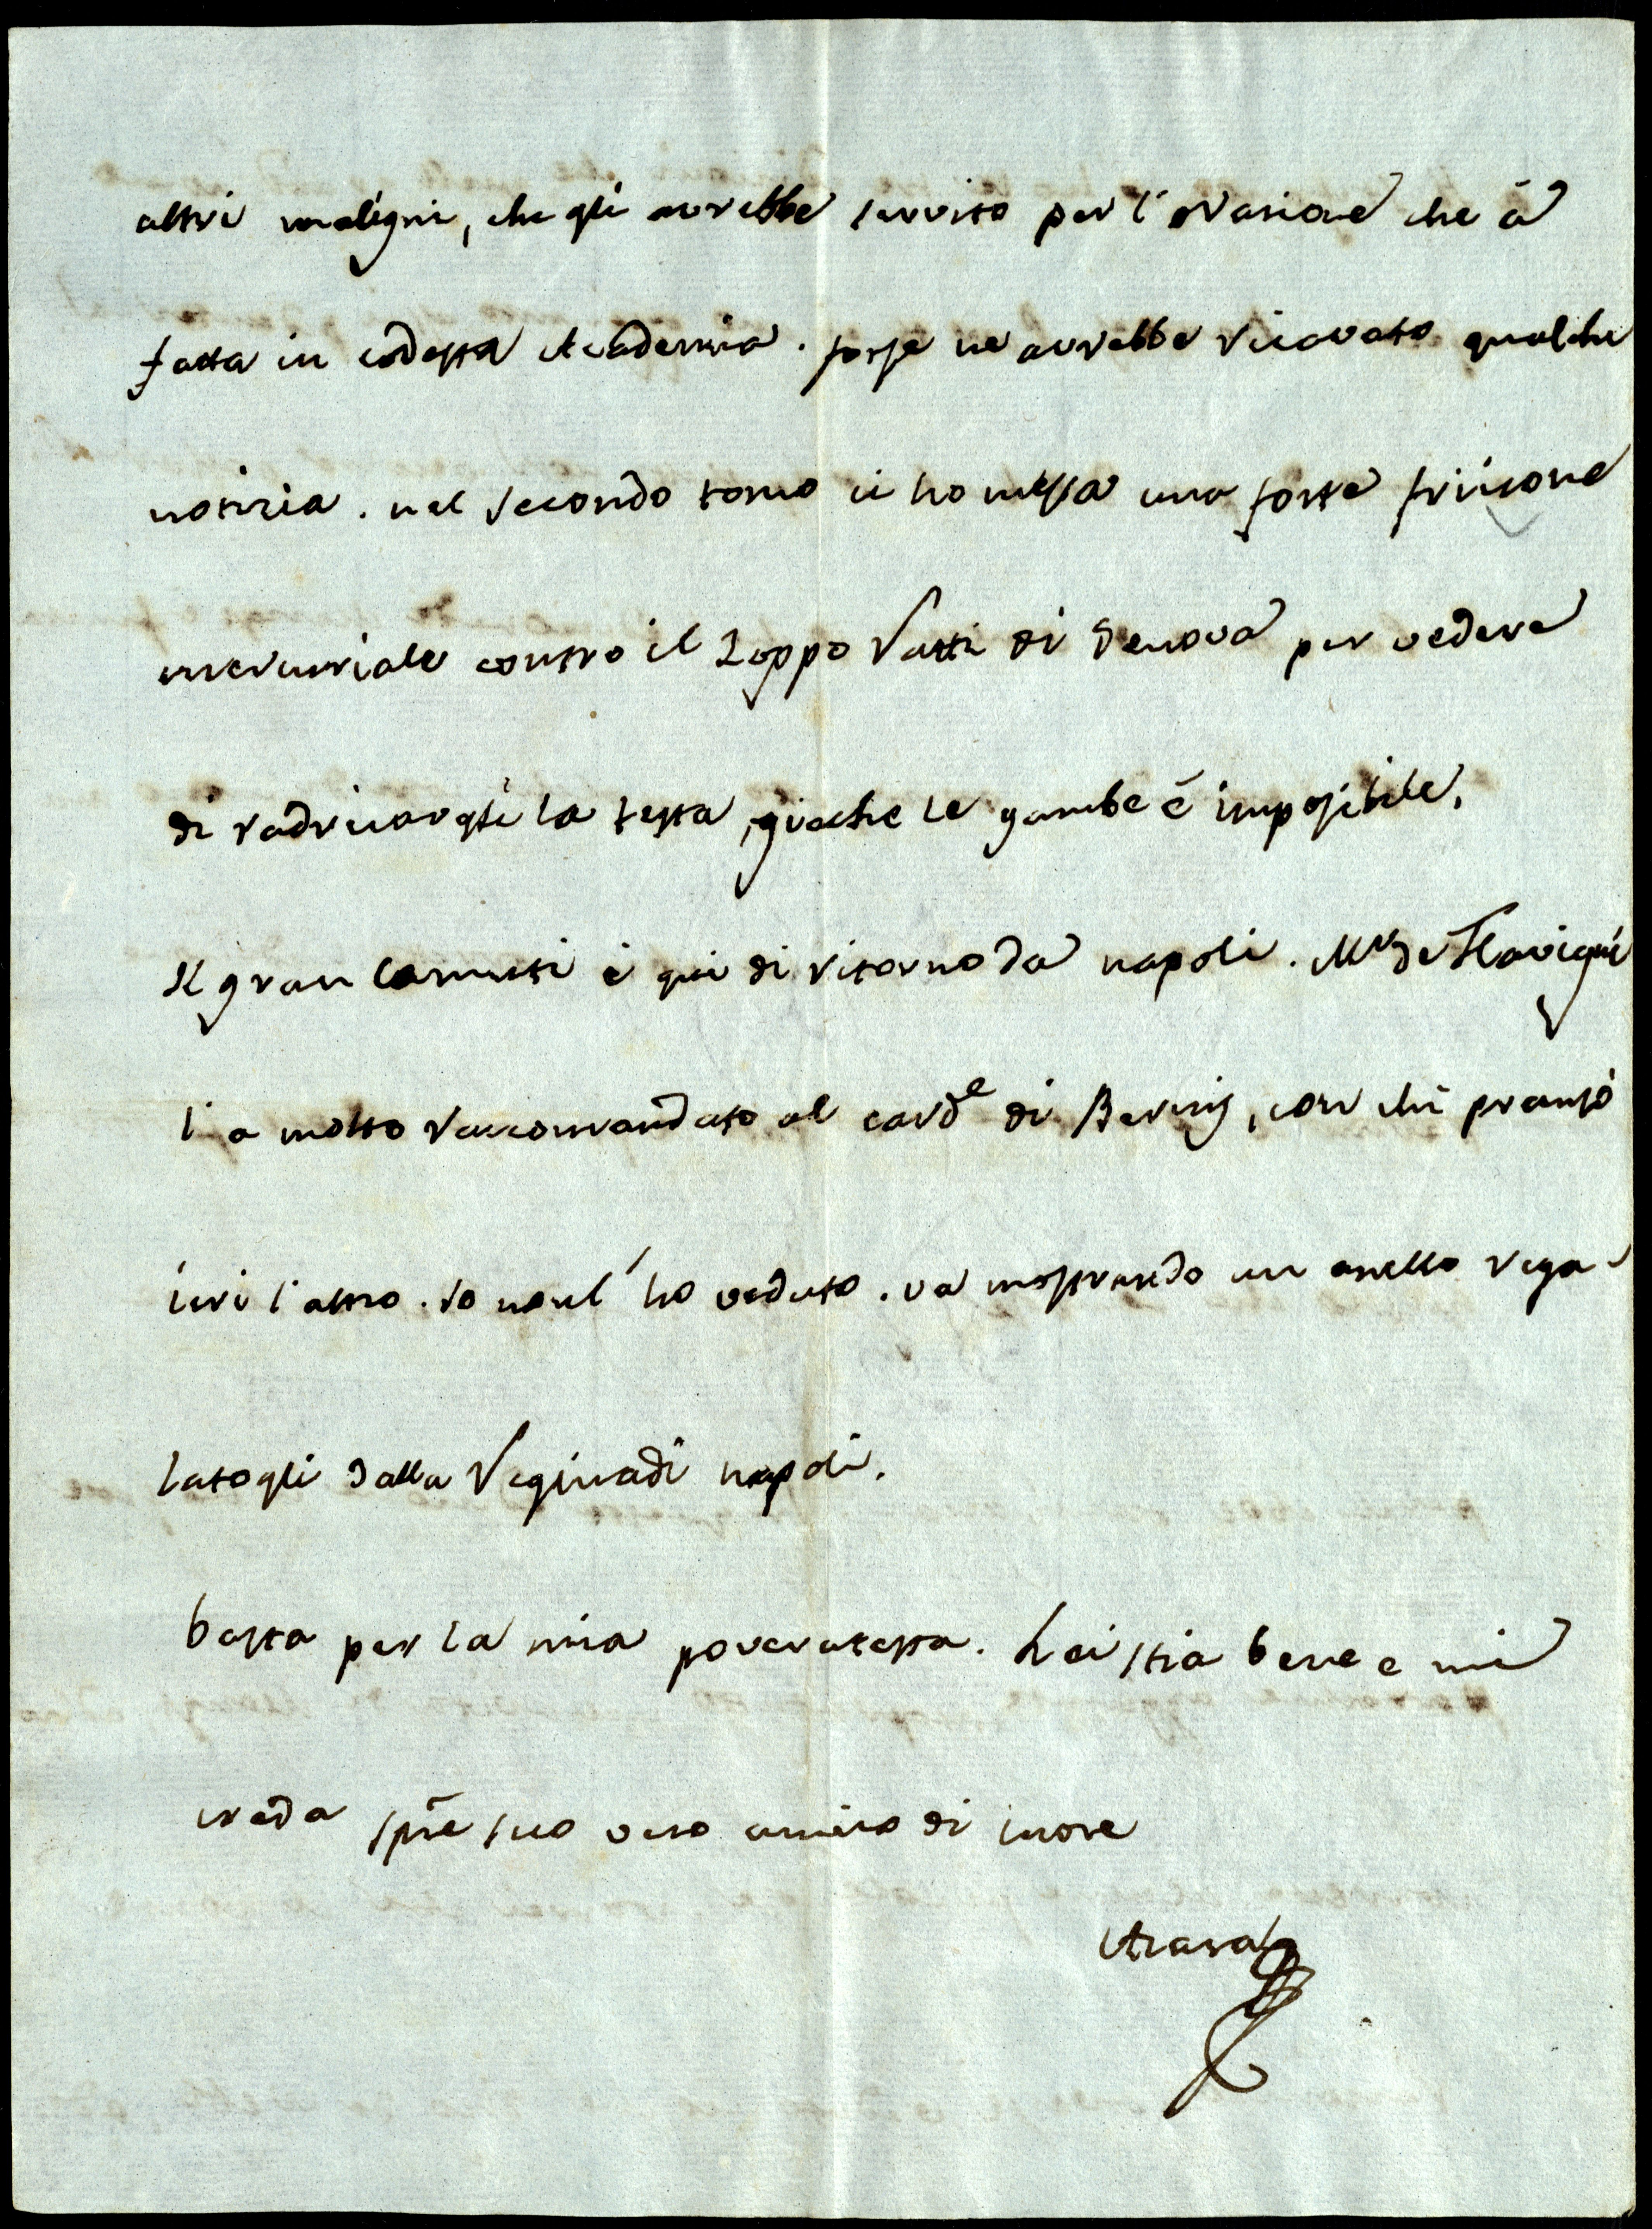 altri maligni, che gli avrebbe servito per l'orazione che à
fatta in codesta Academia. forse ne avrebbe ricavato qualche
notizia. nel secondo tomo ci ho messa una forte frizione
mercuriale contro il Zoppo Ratti di Genova per vedere
di radricargli la testa, giache le gambe é impossibile.
Il gran Carnutti è qui di ritorno da napoli. Mr de Flavigni
l'a molto raccomandato al cardle di Bernis, con chi pransó
ieri l'altro. Io non l'ho veduto. va mostrando un anello rega-
latogli dalla Regina di napoli.
basta per la mia povera testa. Lei stia bene e mi
creda spre suo vero amico di cuore
Azara